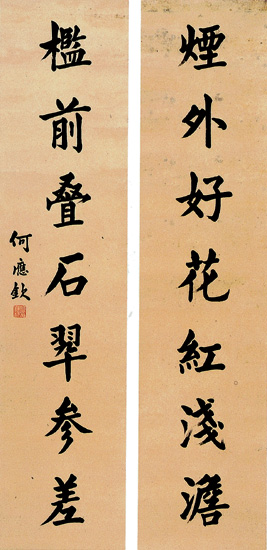 煙外好花紅淺澹
檻前叠石翠參差
何應欽